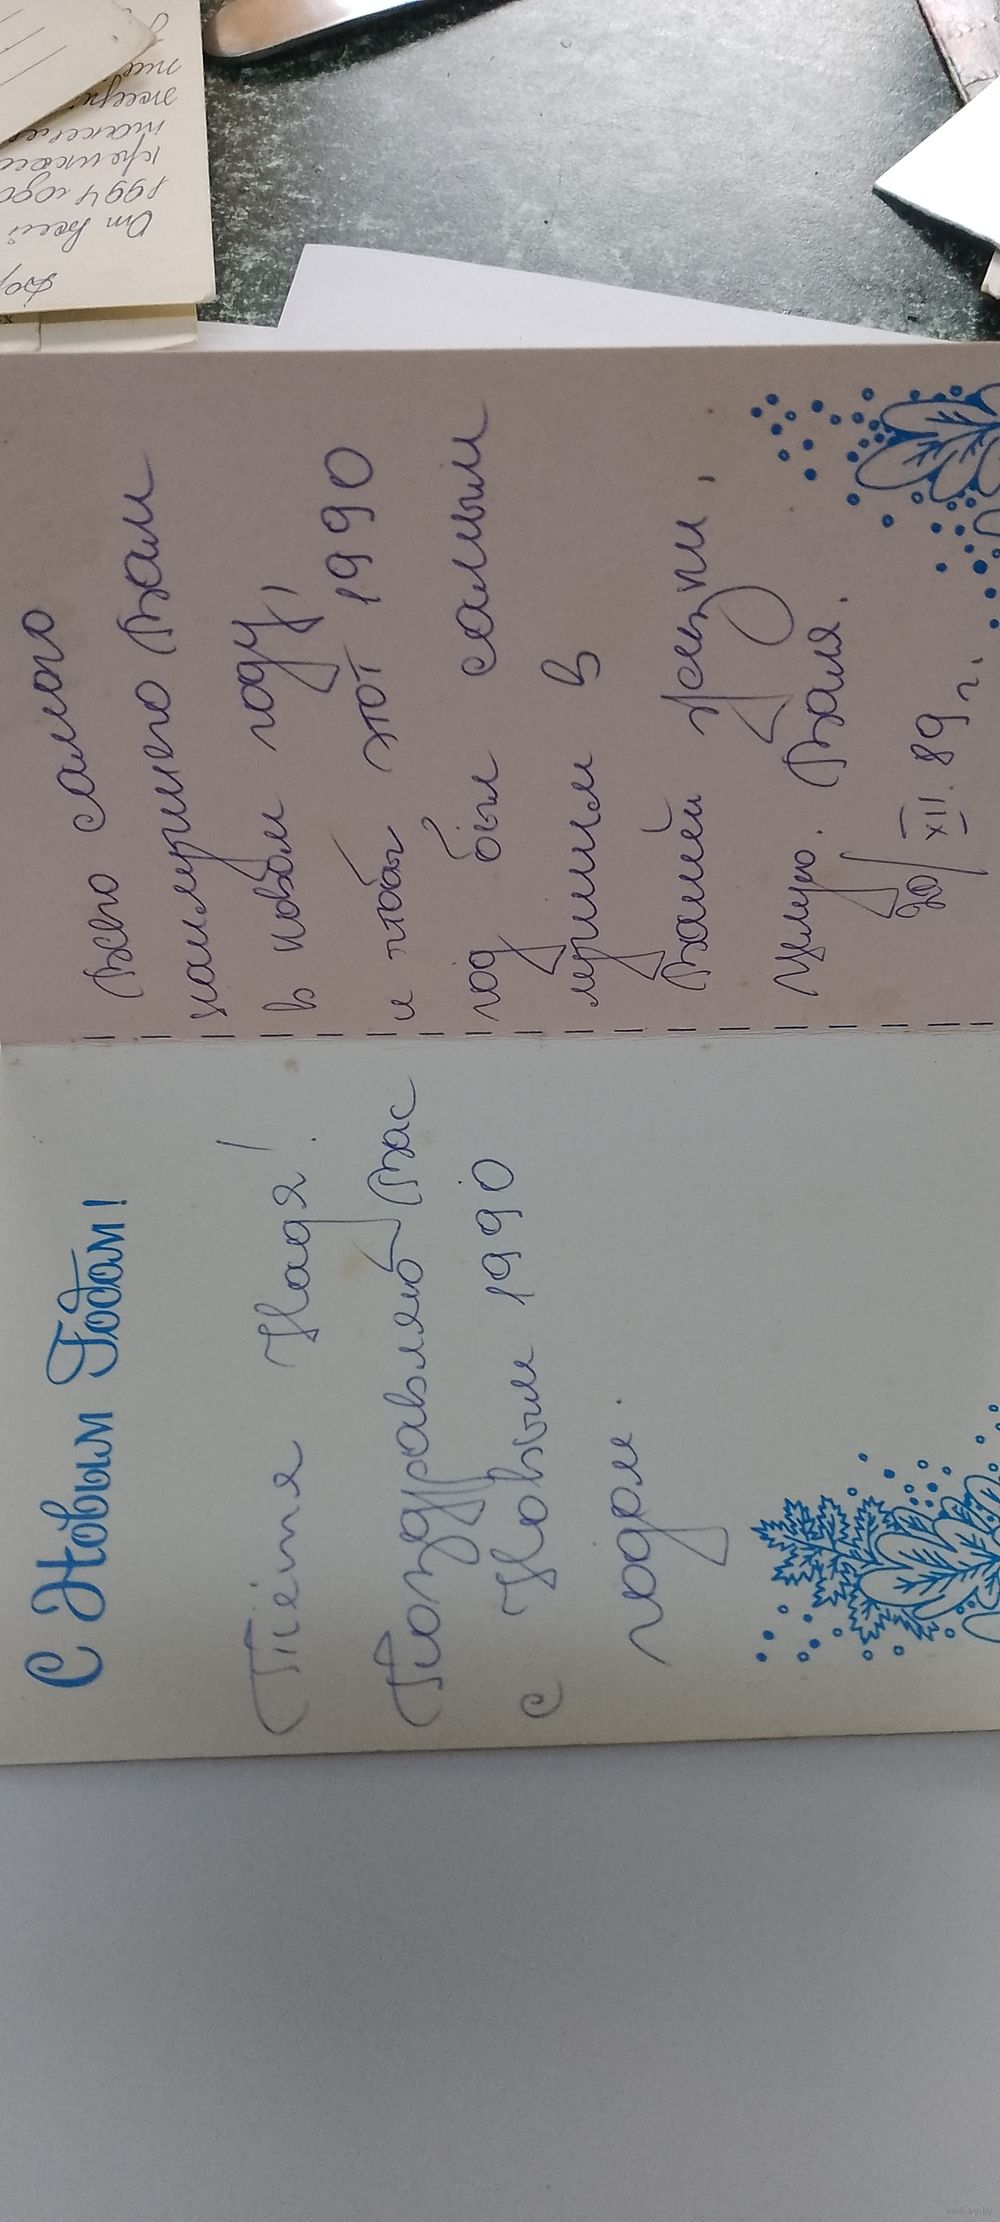 С Новым Годом!
Тётя Надя!
Поздравляю Вас
с Новым 1990
годом.
Всего самого
наилучшего Вам
в новом году,
и чтобы этот 1990
год был самым
лучшим в
Вашей жизни.
Целую. Валя.
20/XII.89 г.
От всей
1994 годо
www.ay.by